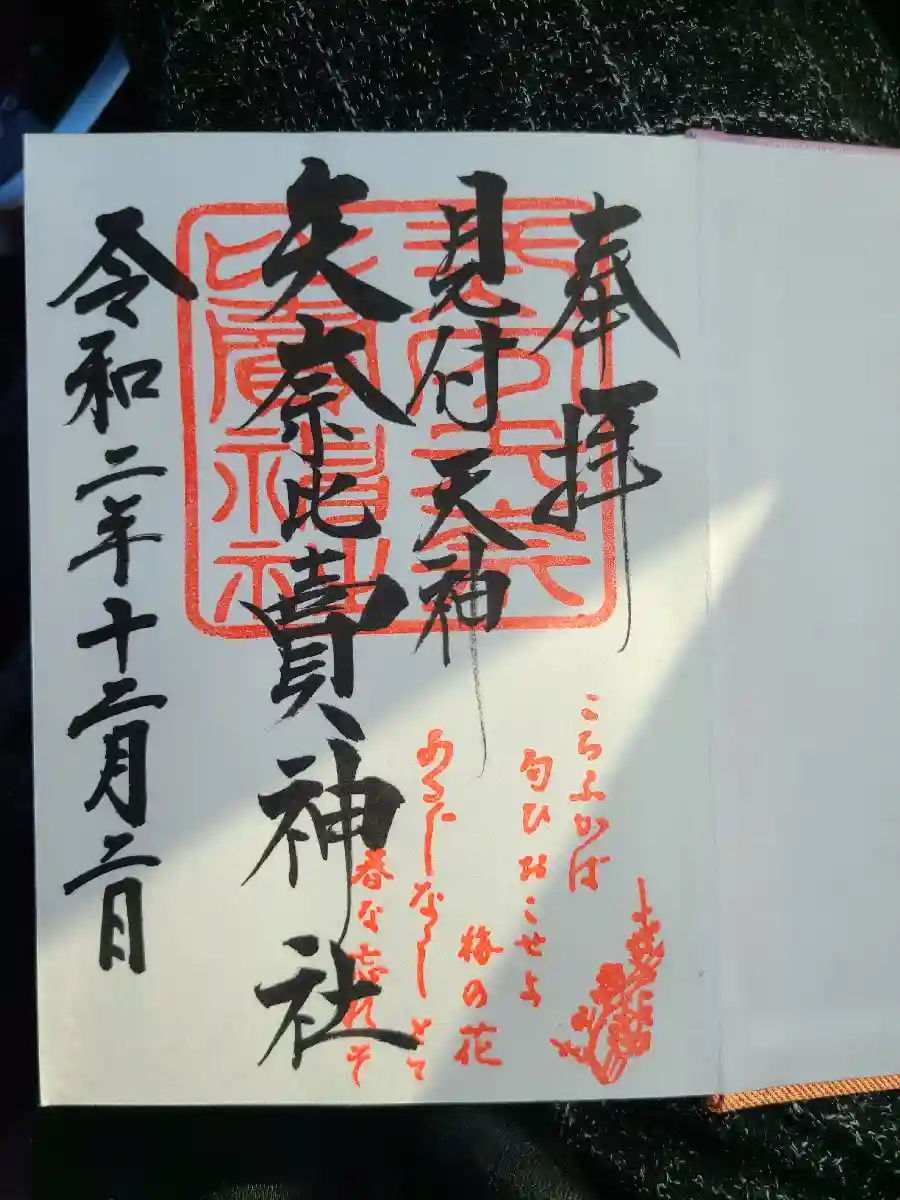 奉拝
見付天神
矢奈比賣神社
令和二年十二月二日
こちふかば
匂ひおこせよ
梅の花
あるじなしとて
春な忘れそ